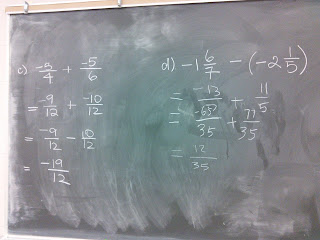 c) -3/4 + -5/6
= -9/12 + -10/12
= -9/12 - 10/12
= -19/12
d) -1 6/7 - (-2 1/5)
= -13/7 + 11/5
= -65/35 + 77/35
= 12/35